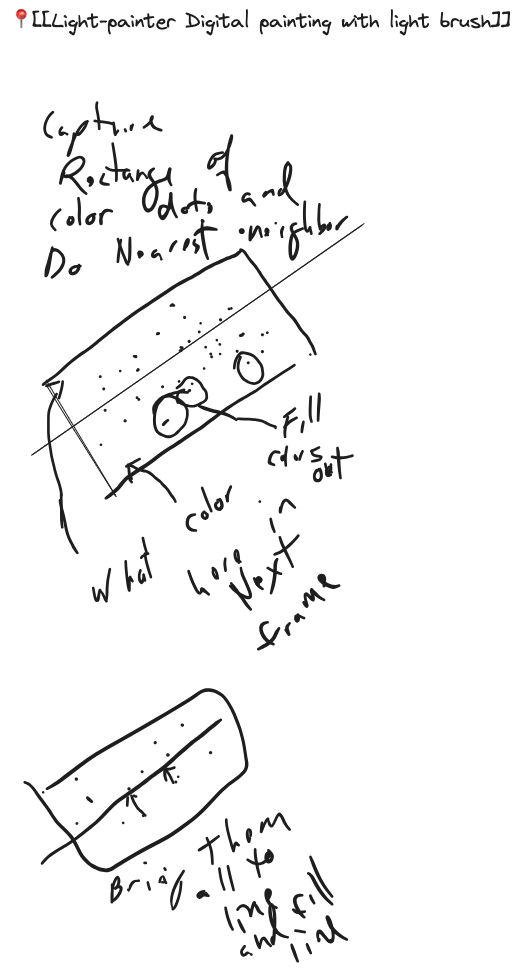 📍[[Light-painter Digital painting with light brush]]
Capture
Rectange of
color dots and
Do Nearest neighbor
Fill
out
color in
What here
Next
frame
Bring them
all to
line fill
and line